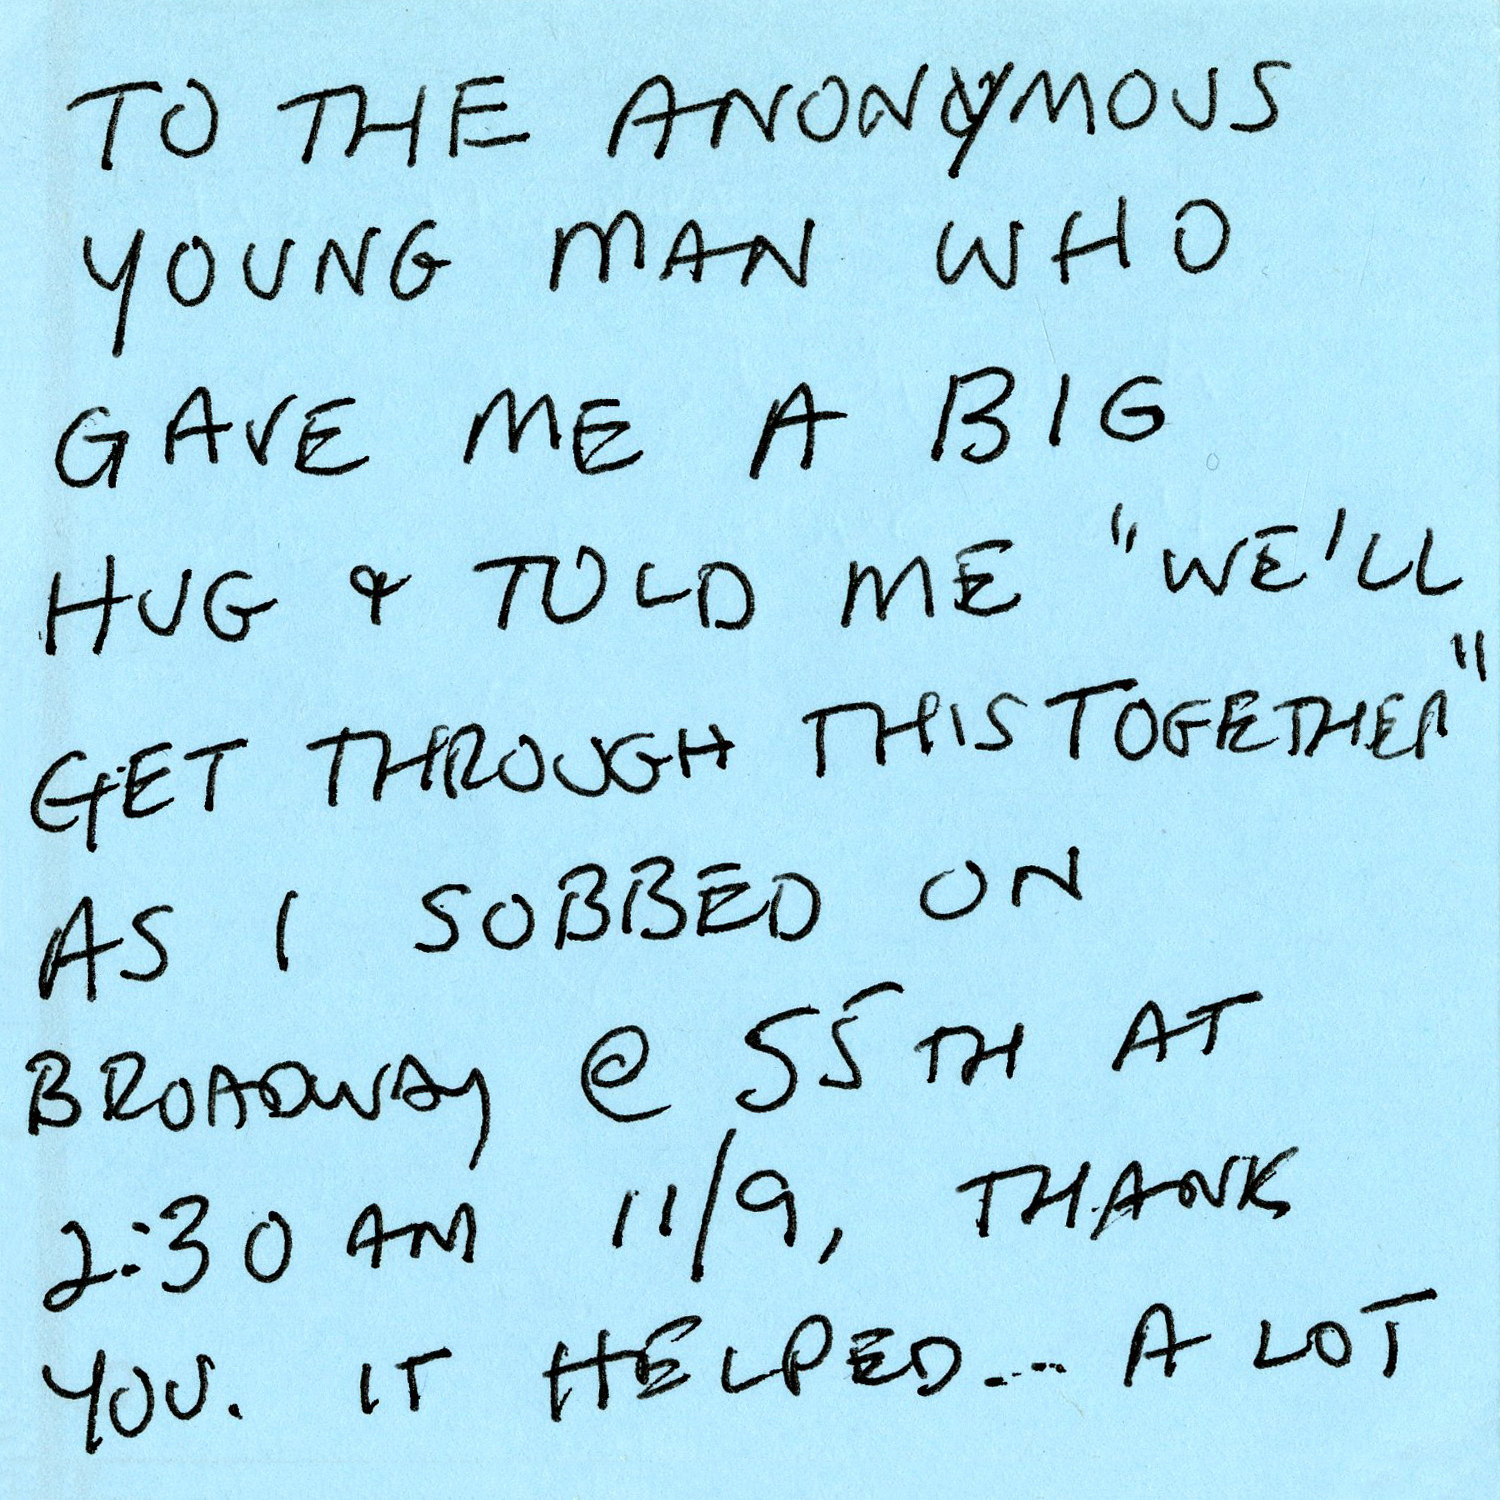 TO THE ANONYMOUS
YOUNG MAN WHO
GAVE ME A BIG
HUG & TOLD ME "WE'LL
GET THROUGH THIS TOGETHER"
AS I SOBBED ON
BROADWAY @ 55TH AT
2:30 AM 11/9, THANK
YOU. IT HELPED... A LOT